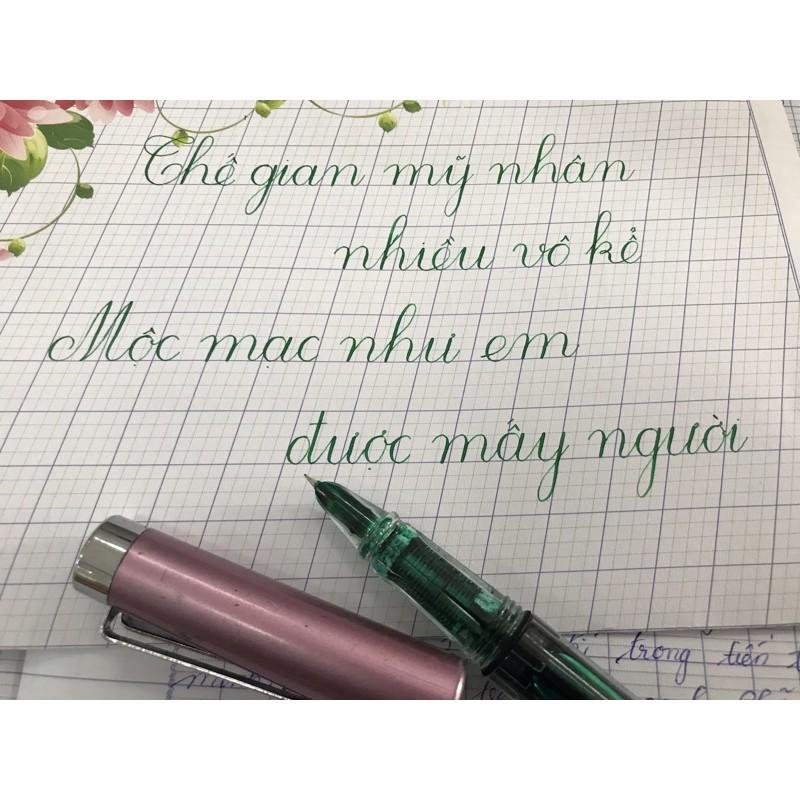 Thế gian mỹ nhân
nhiều vô kể
Mộc mạc như em
được mấy người
trong tiến